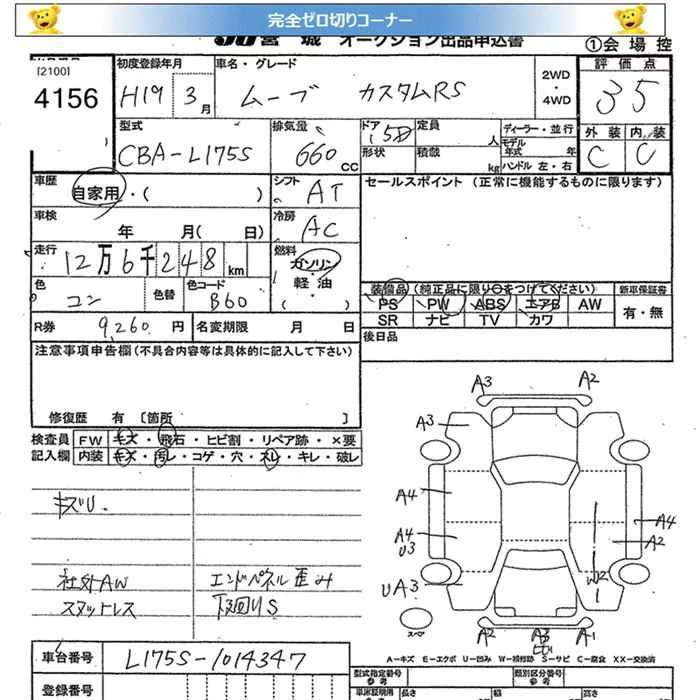 完全ゼロ切りコーナー
JU宮城 オークション出品申込書 ①会場控
[2100]
4156
初度登録年月
H19 3月
車名・グレード
ムーブ カスタムRS
2WD
・
4WD
評価点
35
型式
CBA-L175S
排気量
660 CC
ドア 5D
形状
定員 人
積載 kg
ディーラー・並行
モデル年式 年
ハンドル 左・右
外装 内装
C C
車歴
自家用・( )
シフト AT
セールスポイント (正常に機能するものに限ります)
車検 年 月( 日)
冷房 AC
走行 12万6千248km
燃料
ガソリン
・
軽油
( )
色 コン
色替
色コード B60
装備品 (純正品に限り○をつけてください)
新車保証書
PS PW ABS エアB AW
有・無
SR ナビ TV カワ
R券 9,260円
名変期限 月 日
後日品
注意事項申告欄(不具合内容等は具体的に記入して下さい)
修復歴 有 [箇所 ]
検査員 FW キズ・飛石・ヒビ割・リペア跡・×要
記入欄 内装 キズ・汚レ・コゲ・穴・スレ・キレ・破レ
キズU
社外AW
スタットレス
エンドパネル歪み
下回りS
A3 A2
A3
A4 A4
A4 A2
U3
UA3 W2
1
スペア
A2 A3 A1
A−キズ E−エクボ U−凹み W−補修跡 S−サビ C−腐食 XX−交換済
車台番号 L175S-1014347
登録番号
型式指定番号 類別区分番号
長さ 幅 高さ